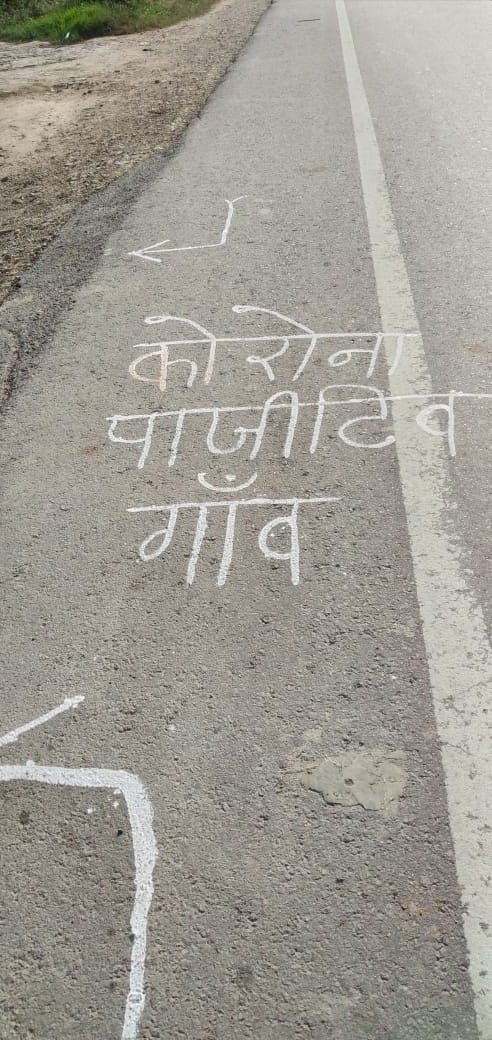 कोरोना
पाजीटिव
गाँव